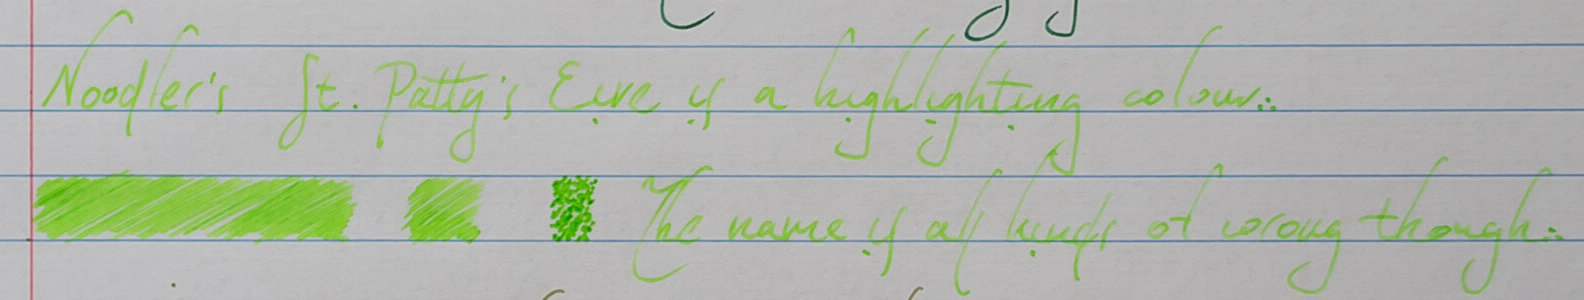 Noodler's St. Patty's Eire is a highlighting colour.
The name is all kinds of wrong though.